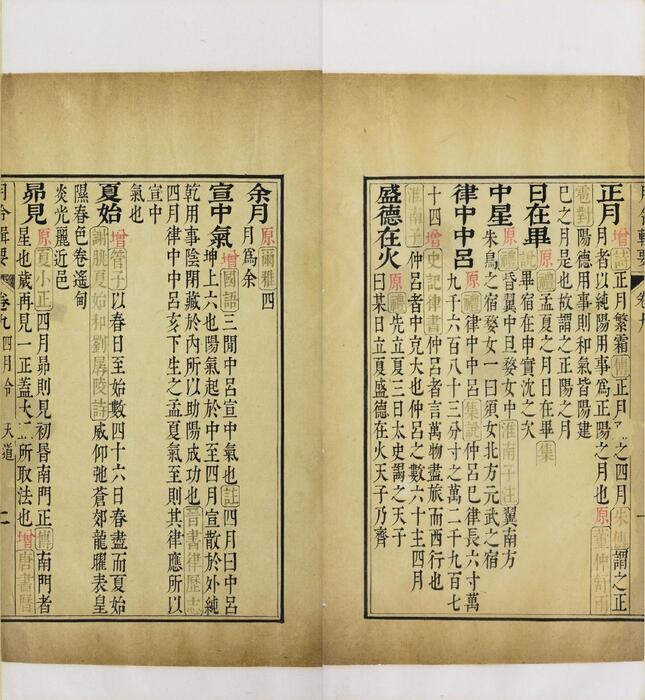 月令輯要 卷九
正月 增 詩 正月繁霜 傳 正月 之四月 朱傳 謂之正
月者以純陽用事為正陽之月也 原 董仲舒雨
雹對 陽德用事則和氣皆陽建
巳之月是也故謂之正陽之月
日在畢 原 禮 孟夏之月日在畢 集
註 畢宿在申實沈之次
中星 原 禮 昏翼中旦婺女中 淮南子注 翼南方
朱鳥之宿婺女一曰須女北方元武之宿
律中中呂 原 禮 律中中呂 集說 仲呂巳律長六寸萬
九千六百八十三分寸之萬二千九百七
十四 增 史記律書 仲呂者言萬物盡旅而西行也
淮南子 仲呂者中克大也仲呂之數六十主四月
盛德在火 原 禮 先立夏三日太史謁之天子
曰某日立夏盛德在火天子乃齊
余月 原 爾雅 四
月為余
宣中氣 增 國語 三閒中呂宣中氣也 註 四月曰中呂
坤上六也陽氣起於中至四月宣散於外純
乾用事陰閉藏於內所以助陽成功也 晉書律歷志
四月律中中呂亥下生之孟夏氣至則其律應所以
宣中
氣也
夏始 增 管子 以春日至始數四十六日春盡而夏始
謝朓夏始和劉孱陵詩 威仰弛蒼郊龍曜表皇
隰春色卷遙甸
炎光麗近邑
昴見 原 夏小正 四月昴則見初昏南門正 傳 南門者
星也歲再見一正蓋大 所取法也 增 唐書曆
月令輯要 卷九 四月令 天道 二